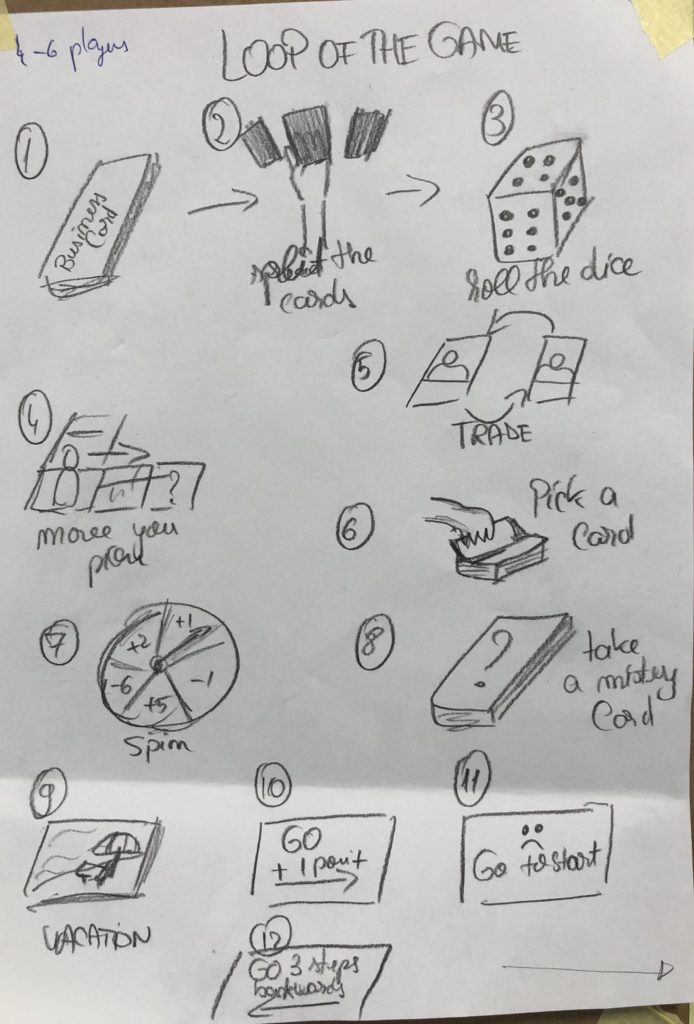 4-6 players
LOOP OF THE GAME
1
Business
Card
2
the
cards
3
roll the dice
4
?
move you
5
TRADE
6
Pick a
Card
7
+1
+2
-1
-6
+5
Spin
8
?
take
a mistery
Card
9
VACATION
10
GO
+1 point
11
Go to start
12
GO 3 steps
backwards